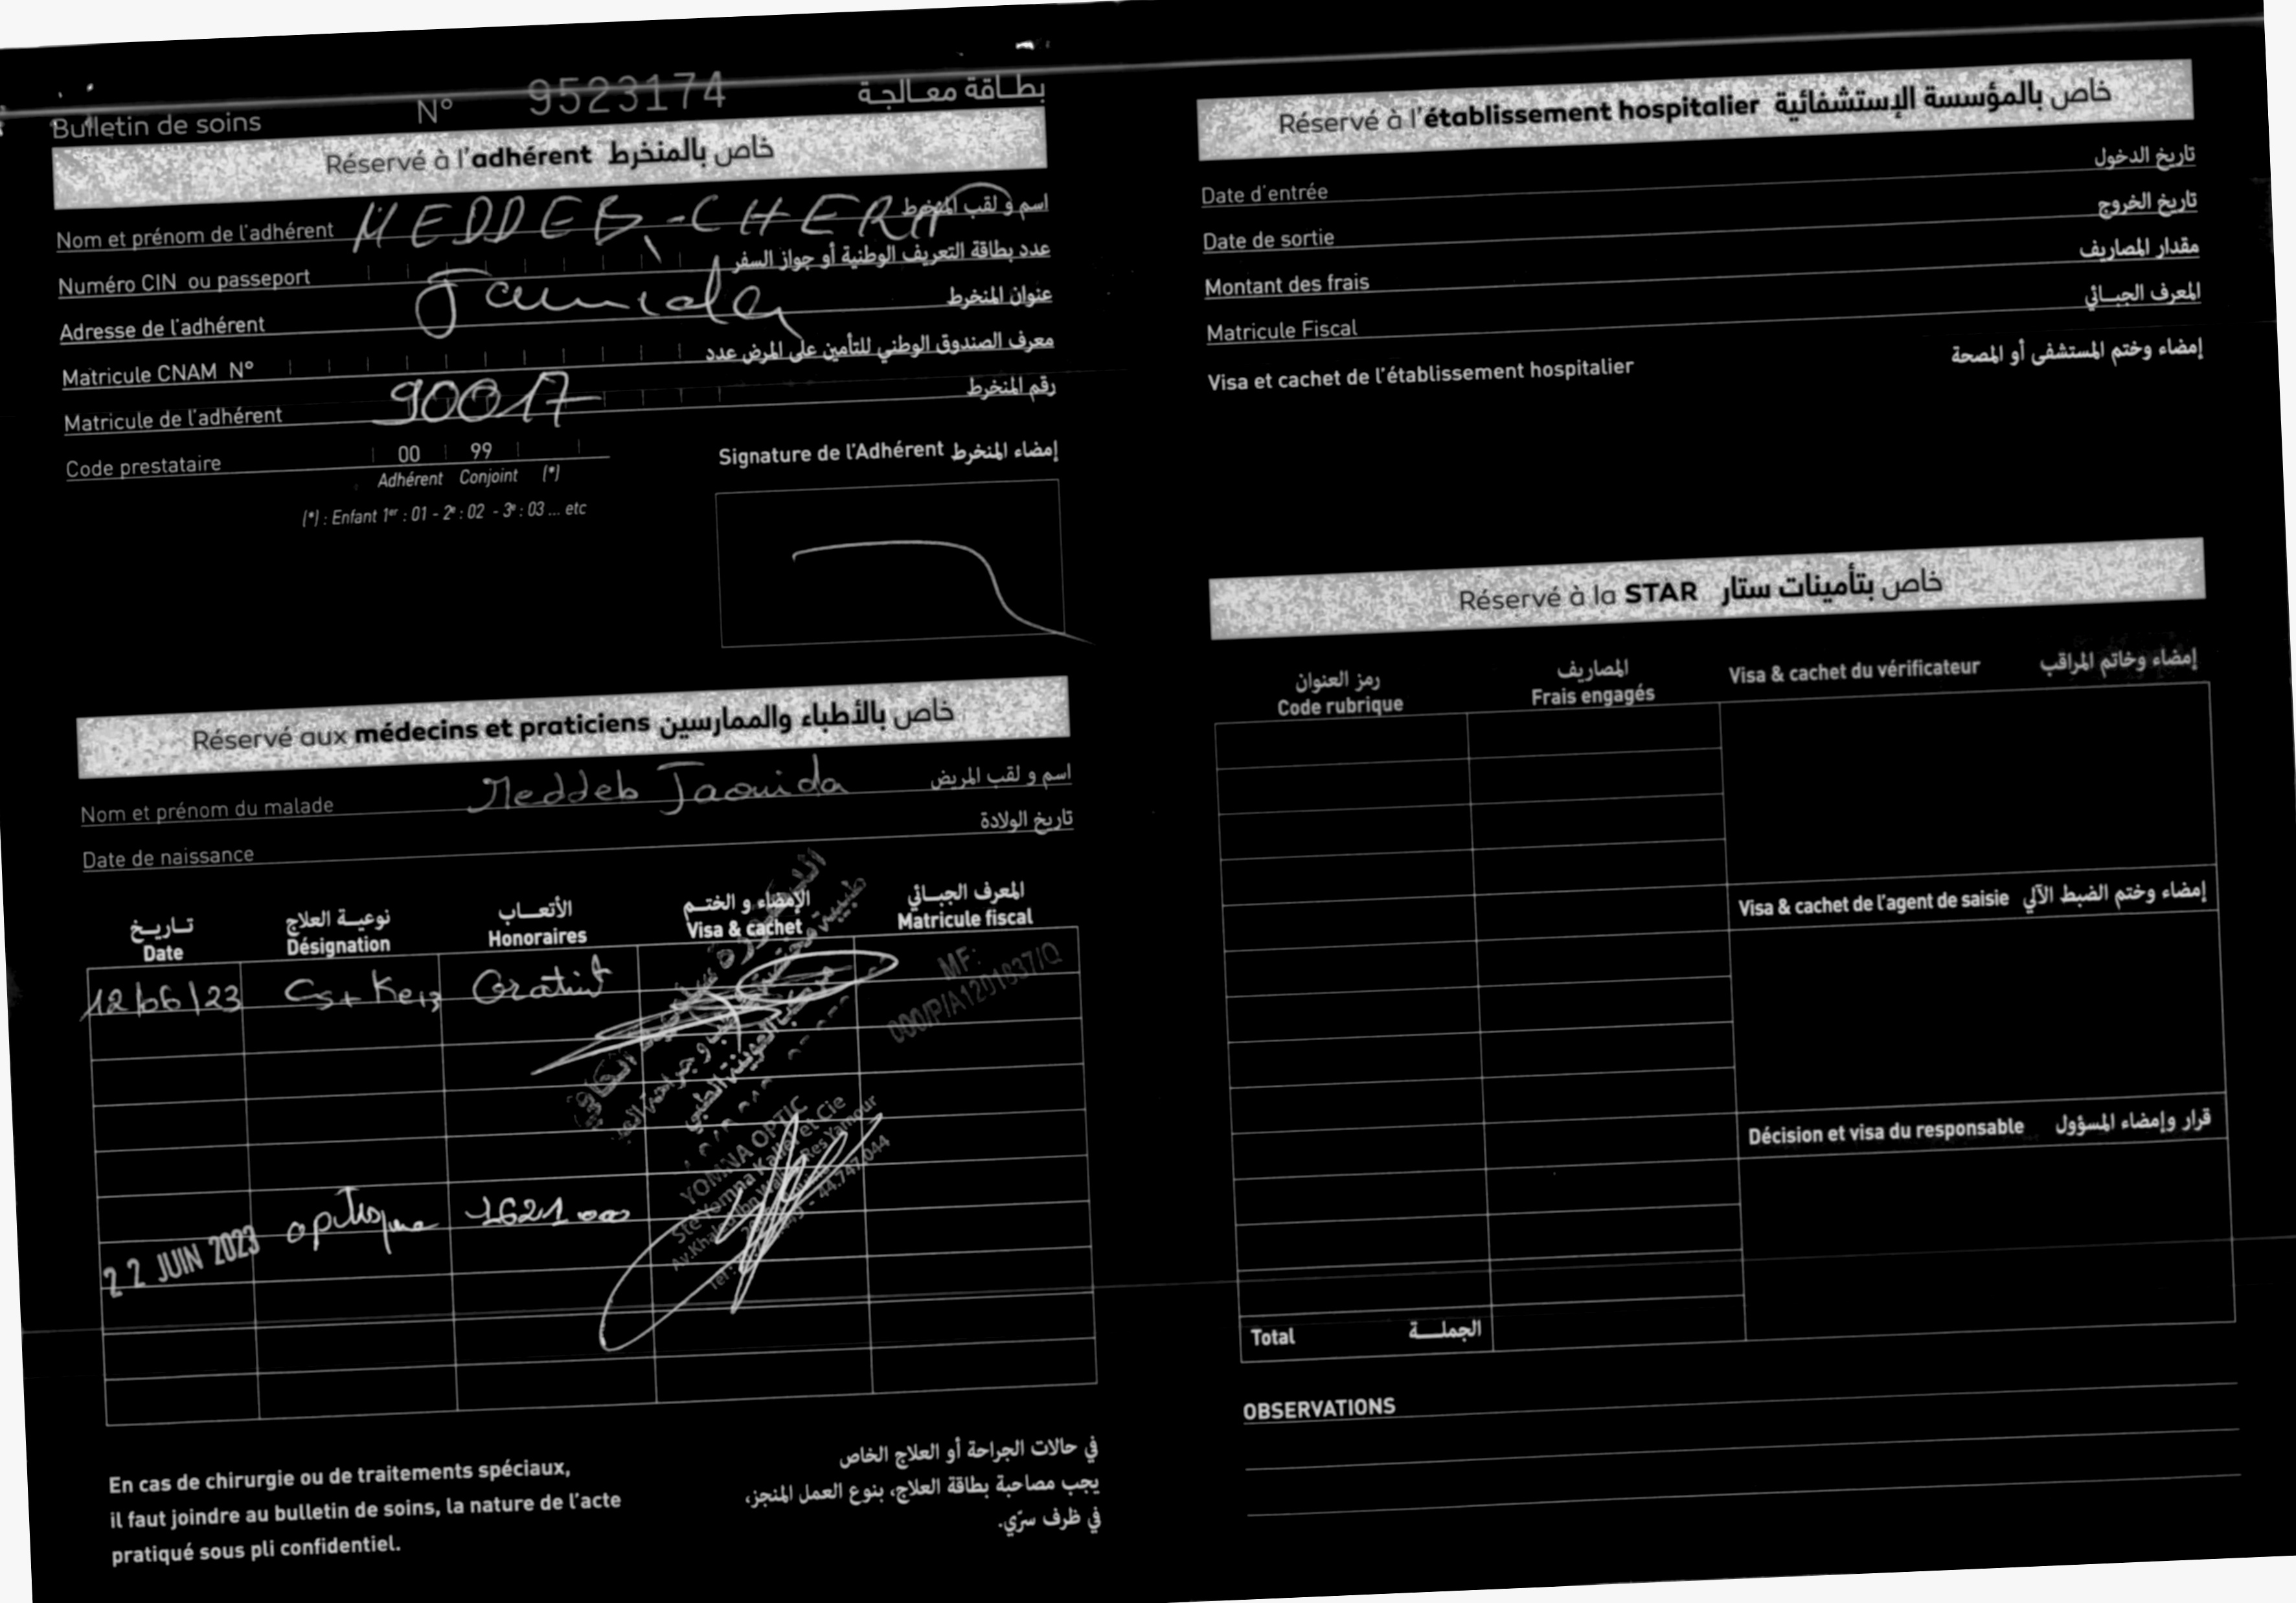 Bulletin de soins N° 9523174 بطاقة معالجة
Réservé à l'adhérent خاص بالمنخرط
Nom et prénom de l'adhérent MEDDEB-CHERIF اسم و لقب المنخرط
Numéro CIN ou passeport عدد بطاقة التعريف الوطنية أو جواز السفر
Jaouida
Adresse de l'adhérent عنوان المنخرط
Matricule CNAM N° معرف الصندوق الوطني للتأمين على المرض عدد
Matricule de l'adhérent 90017 رقم المنخرط
Code prestataire 00 99
Adhérent Conjoint (*)
(*) : Enfant 1er : 01 - 2e : 02 - 3e : 03 ... etc
Signature de l'Adhérent إمضاء المنخرط
Réservé aux médecins et praticiens خاص بالأطباء والممارسين
Nom et prénom du malade Meddeb Jaouida اسم و لقب المريض
Date de naissance تاريخ الولادة
تاريخ نوعية العلاج الأتعاب الإمضاء و الختم المعرف الجبائي
Date Désignation Honoraires Visa & cachet Matricule fiscal
12/06/23 Cs+ Gratuit
MF:
000/P/A1201637/Q
YOMNA OPTIC
Ste Yamna Kallel et Cie
Av.Khaled Ibn Walid Res Yamour
44.747.044
22 JUIN 2023 optique 1621 000
En cas de chirurgie ou de traitements spéciaux,
il faut joindre au bulletin de soins, la nature de l'acte
pratiqué sous pli confidentiel.
في حالات الجراحة أو العلاج الخاص
يجب مصاحبة بطاقة العلاج، بنوع العمل المنجز،
في ظرف سرّي.
Réservé à l'établissement hospitalier خاص بالمؤسسة الإستشفائية
Date d'entrée تاريخ الدخول
Date de sortie تاريخ الخروج
Montant des frais مقدار المصاريف
Matricule Fiscal المعرف الجبائي
Visa et cachet de l'établissement hospitalier إمضاء وختم المستشفى أو المصحة
Réservé à la STAR خاص بتأمينات ستار
رمز العنوان المصاريف
Code rubrique Frais engagés Visa & cachet du vérificateur إمضاء وخاتم المراقب
Visa & cachet de l'agent de saisie إمضاء وختم الضبط الآلي
Décision et visa du responsable قرار وإمضاء المسؤول
Total الجملة
OBSERVATIONS